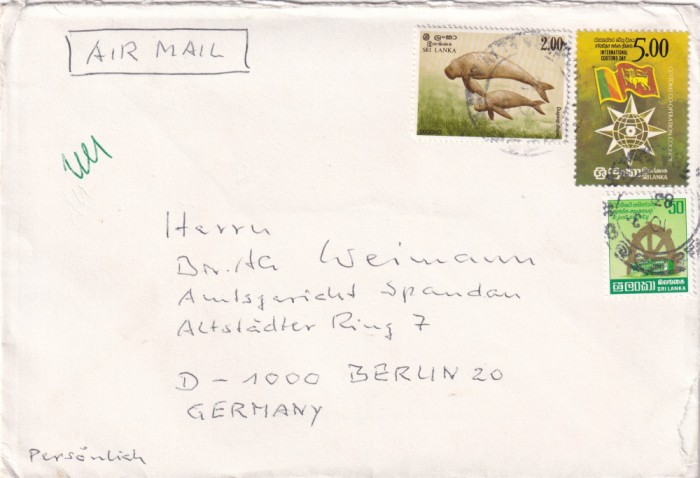 AIR MAIL
ශ්‍රී ලංකා
இலங்கை
SRI LANKA
2.00
DUGONG
5.00
INTERNATIONAL
CUSTOMS DAY
CUSTOMS CO-OPERATION COUNCIL
ශ්‍රී ලංකා இலங்கை
SRI LANKA
50
ශ්‍රී ලංකා இலங்கை
SRI LANKA
Herrn
Weimann
Amtsgericht Spandau
Altstädter Ring 7
D - 1000 BERLIN 20
GERMANY
Persönlich